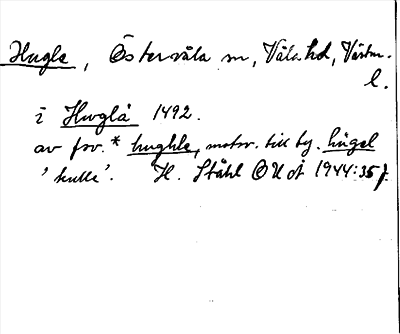 Hugle, Östervåla sn, Våla hd, Västm.
l.
i Hwglå 1492.
av fsv. * hughle, motsv. till ty. hügel
'kulle'. H. Ståhl OUÅ 1944:35 f.